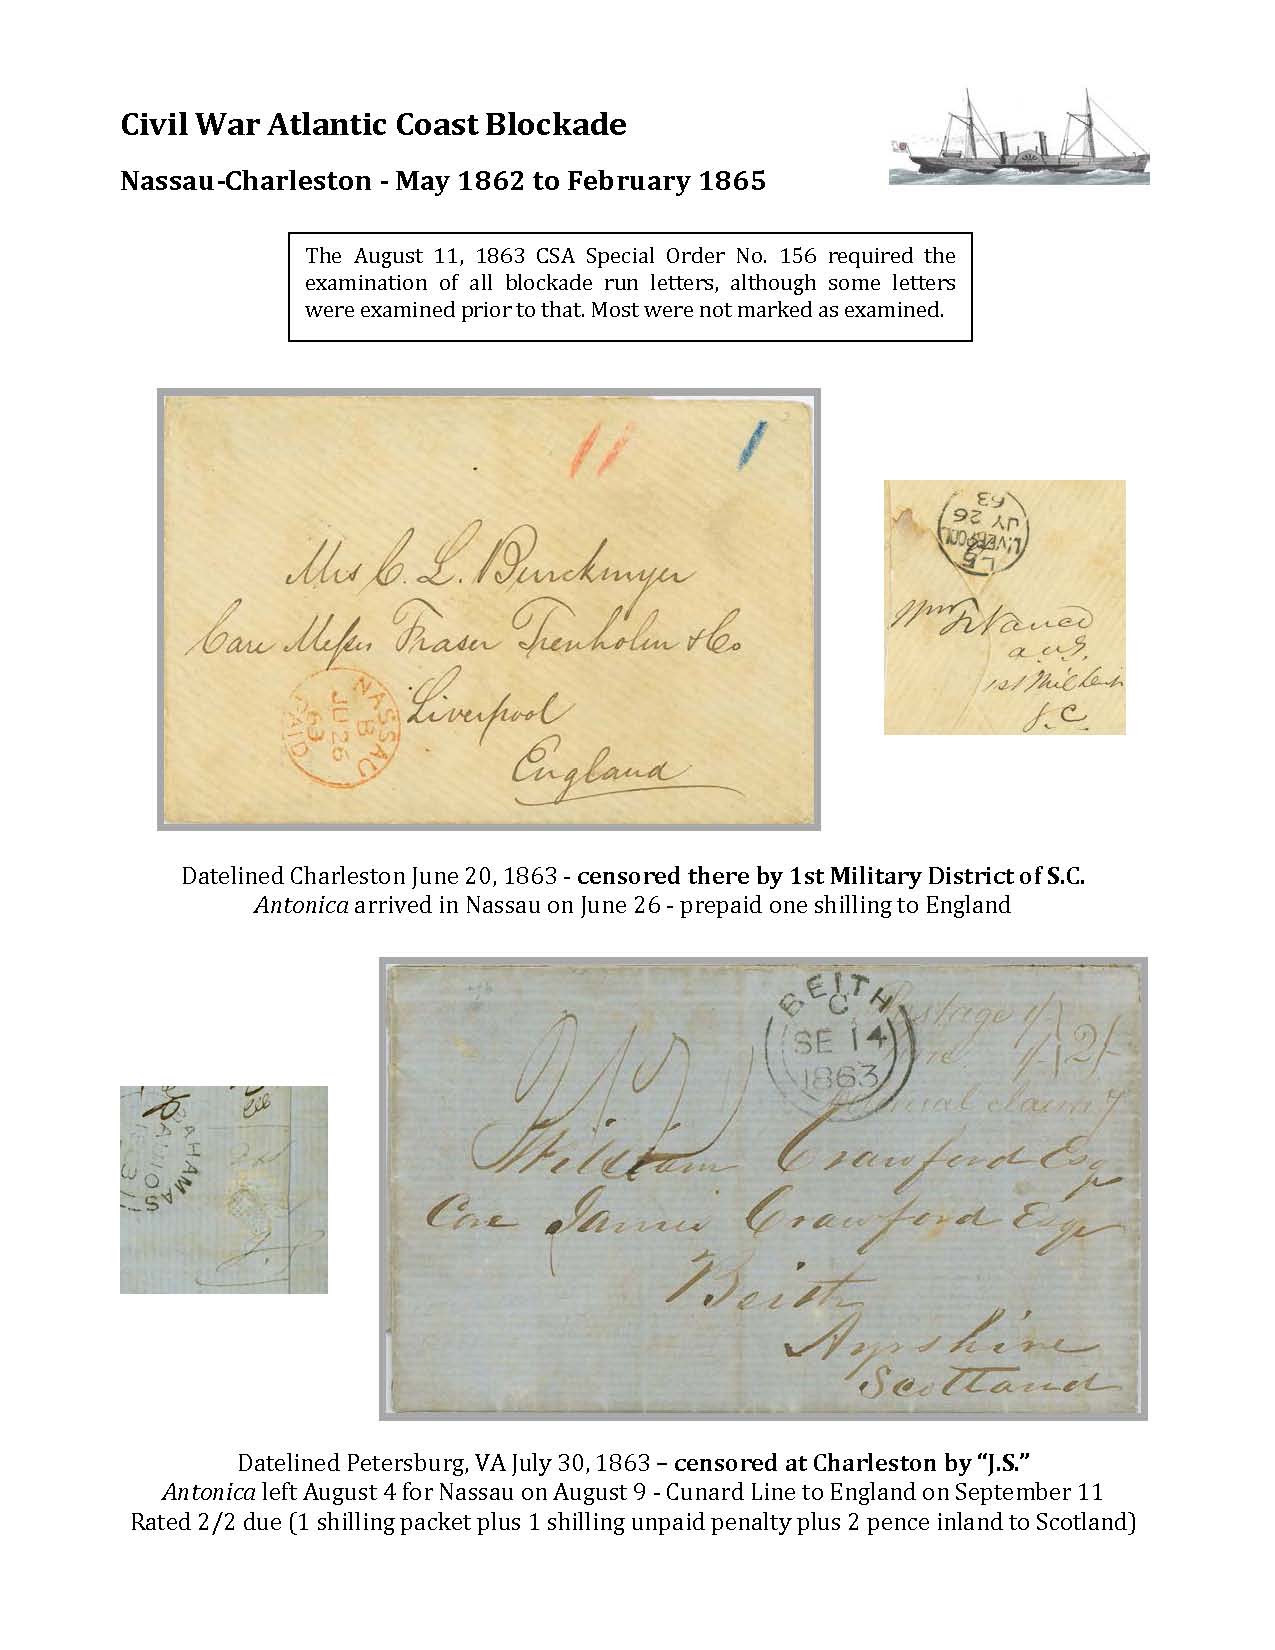 Civil War Atlantic Coast Blockade
Nassau-Charleston - May 1862 to February 1865
The August 11, 1863 CSA Special Order No. 156 required the
examination of all blockade run letters, although some letters
were examined prior to that. Most were not marked as examined.
11 1
Mrs C. L. Burckmyer
Care Messrs Fraser Trenholm & Co
Liverpool
England
NASSAU
B
JU 26
63
PAID
LIVERPOOL
JY 26
63
Wm F Nance
1st Mil
S.C.
Datelined Charleston June 20, 1863 - censored there by 1st Military District of S.C.
Antonica arrived in Nassau on June 26 - prepaid one shilling to England
BEITH
C
SE 14
1863
Postage 1/
1/ 2/-
claim
2/2
William Crawford Esq
Care James Crawford Esqr
Beith
Ayrshire
Scotland
BAHAMAS
J.S.
Datelined Petersburg, VA July 30, 1863 – censored at Charleston by “J.S.”
Antonica left August 4 for Nassau on August 9 - Cunard Line to England on September 11
Rated 2/2 due (1 shilling packet plus 1 shilling unpaid penalty plus 2 pence inland to Scotland)